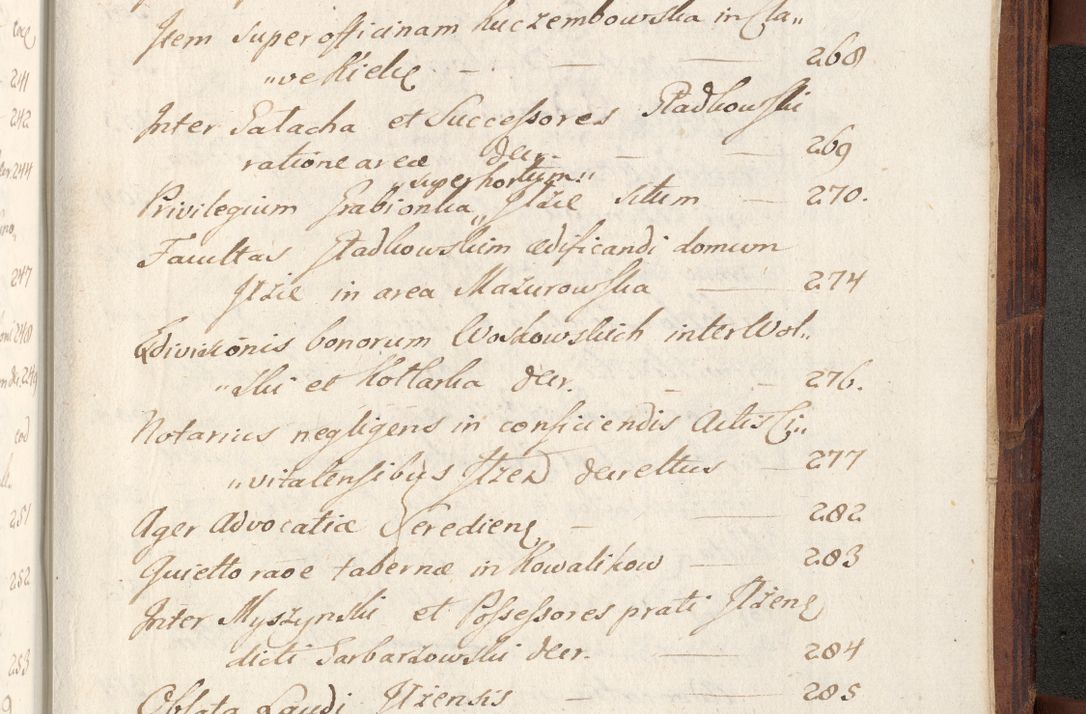 Item super officinam Kuczembowska in Cla„
„ve Kielę — — — 268
Inter Satacha et Successores Stadkowski
ratione areæ decr. — — 269
„super hortum„
Privilegium Grabionka „ Iłżæ situm — 270.
Facultas Stadkowskim ædificandi domum
Iłżæ in area Mazurowska — 274
Divisionis bonorum Woskowskich inter Wol„
„ski et Kotlarka decr. — — 276.
Notarius negligens in conficiendis Actis Ci„
„vitatensibus Iłżen decretus — 277
Ager Advocatiæ Seredien — — 282
Quietto raõe tabernæ in Kowalikow — 283
Inter Myszynski et Possessores prati Iłżen
dicti Garbarzowski decr. — 284
Oblata Laudi Iłżensis — — 285
241
242
244
247
251
252
253